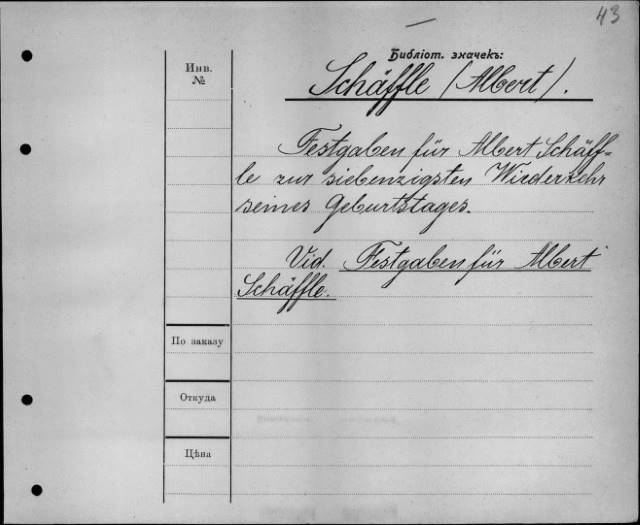 43
Библіот. значекъ:
Инв.
№
Schäffle (Albert).
Festgaben für Albert Schäff-
le zur siebenzigsten Wiederkehr
seines Geburtstages.
Vid. Festgaben für Albert
Schäffle.
По заказу
Откуда
Цѣна